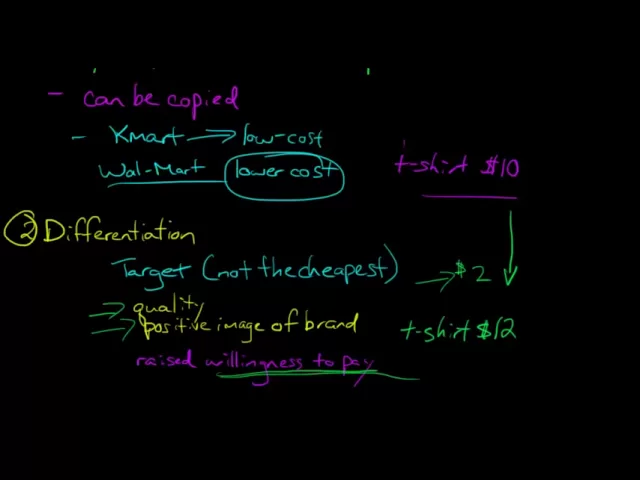 - can be copied
- Kmart → low-cost
Wal-Mart lower cost
t-shirt $10
2 Differentiation
Target (not the cheapest)
→ $2
→ quality
→ positive image of brand
t-shirt $12
raised willingness to pay